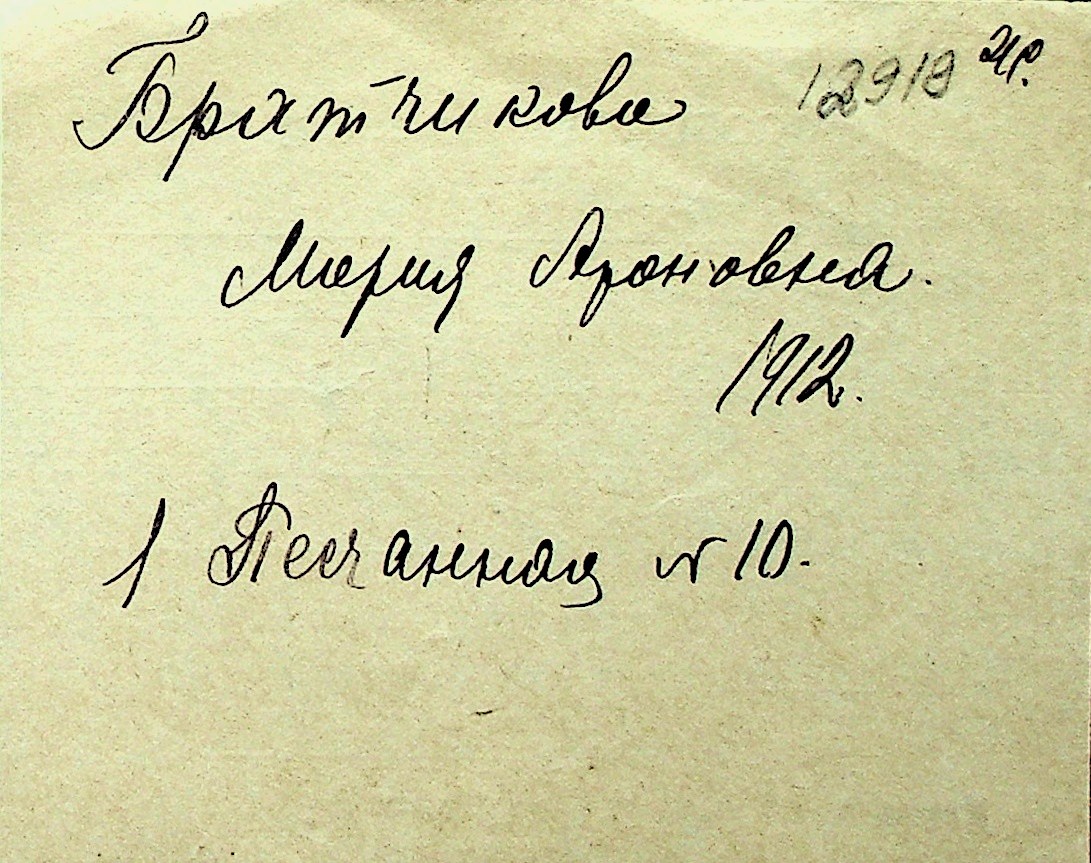 Братчикова 12918
Мария Ароновна.
1912.
1 Песчанная № 10.